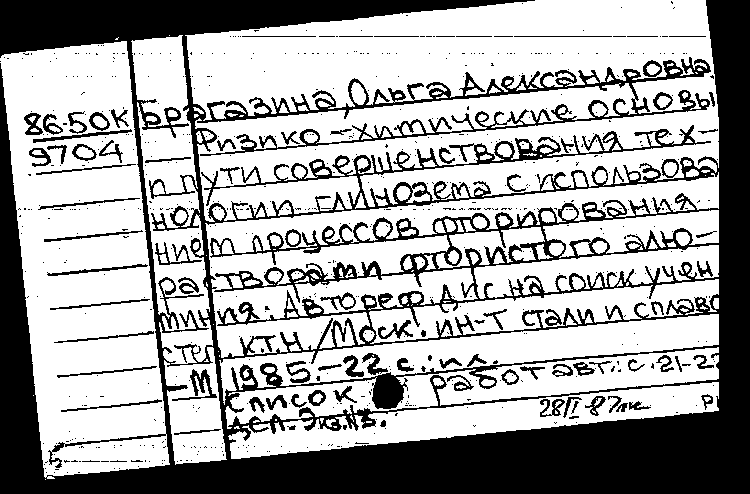 86-50К Брагазина, Ольга Александровна
9704 Физико-химические основы
и пути совершенствования тех-
нологии глинозема с использова
нием процессов фторирования
растворами фтористого алю-
миния: Автореф. дис. на соиск. учен
степ. к.т.н./Моск. ин-т стали и сплаво
-М 1985.-22 с.:ил.
Список работ авт.: с. 21-22
ДСП. Экз.№3.